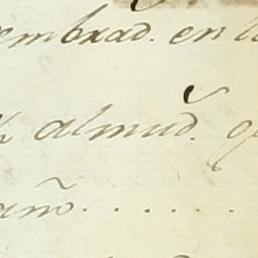 sembrad. en
almud.
año......